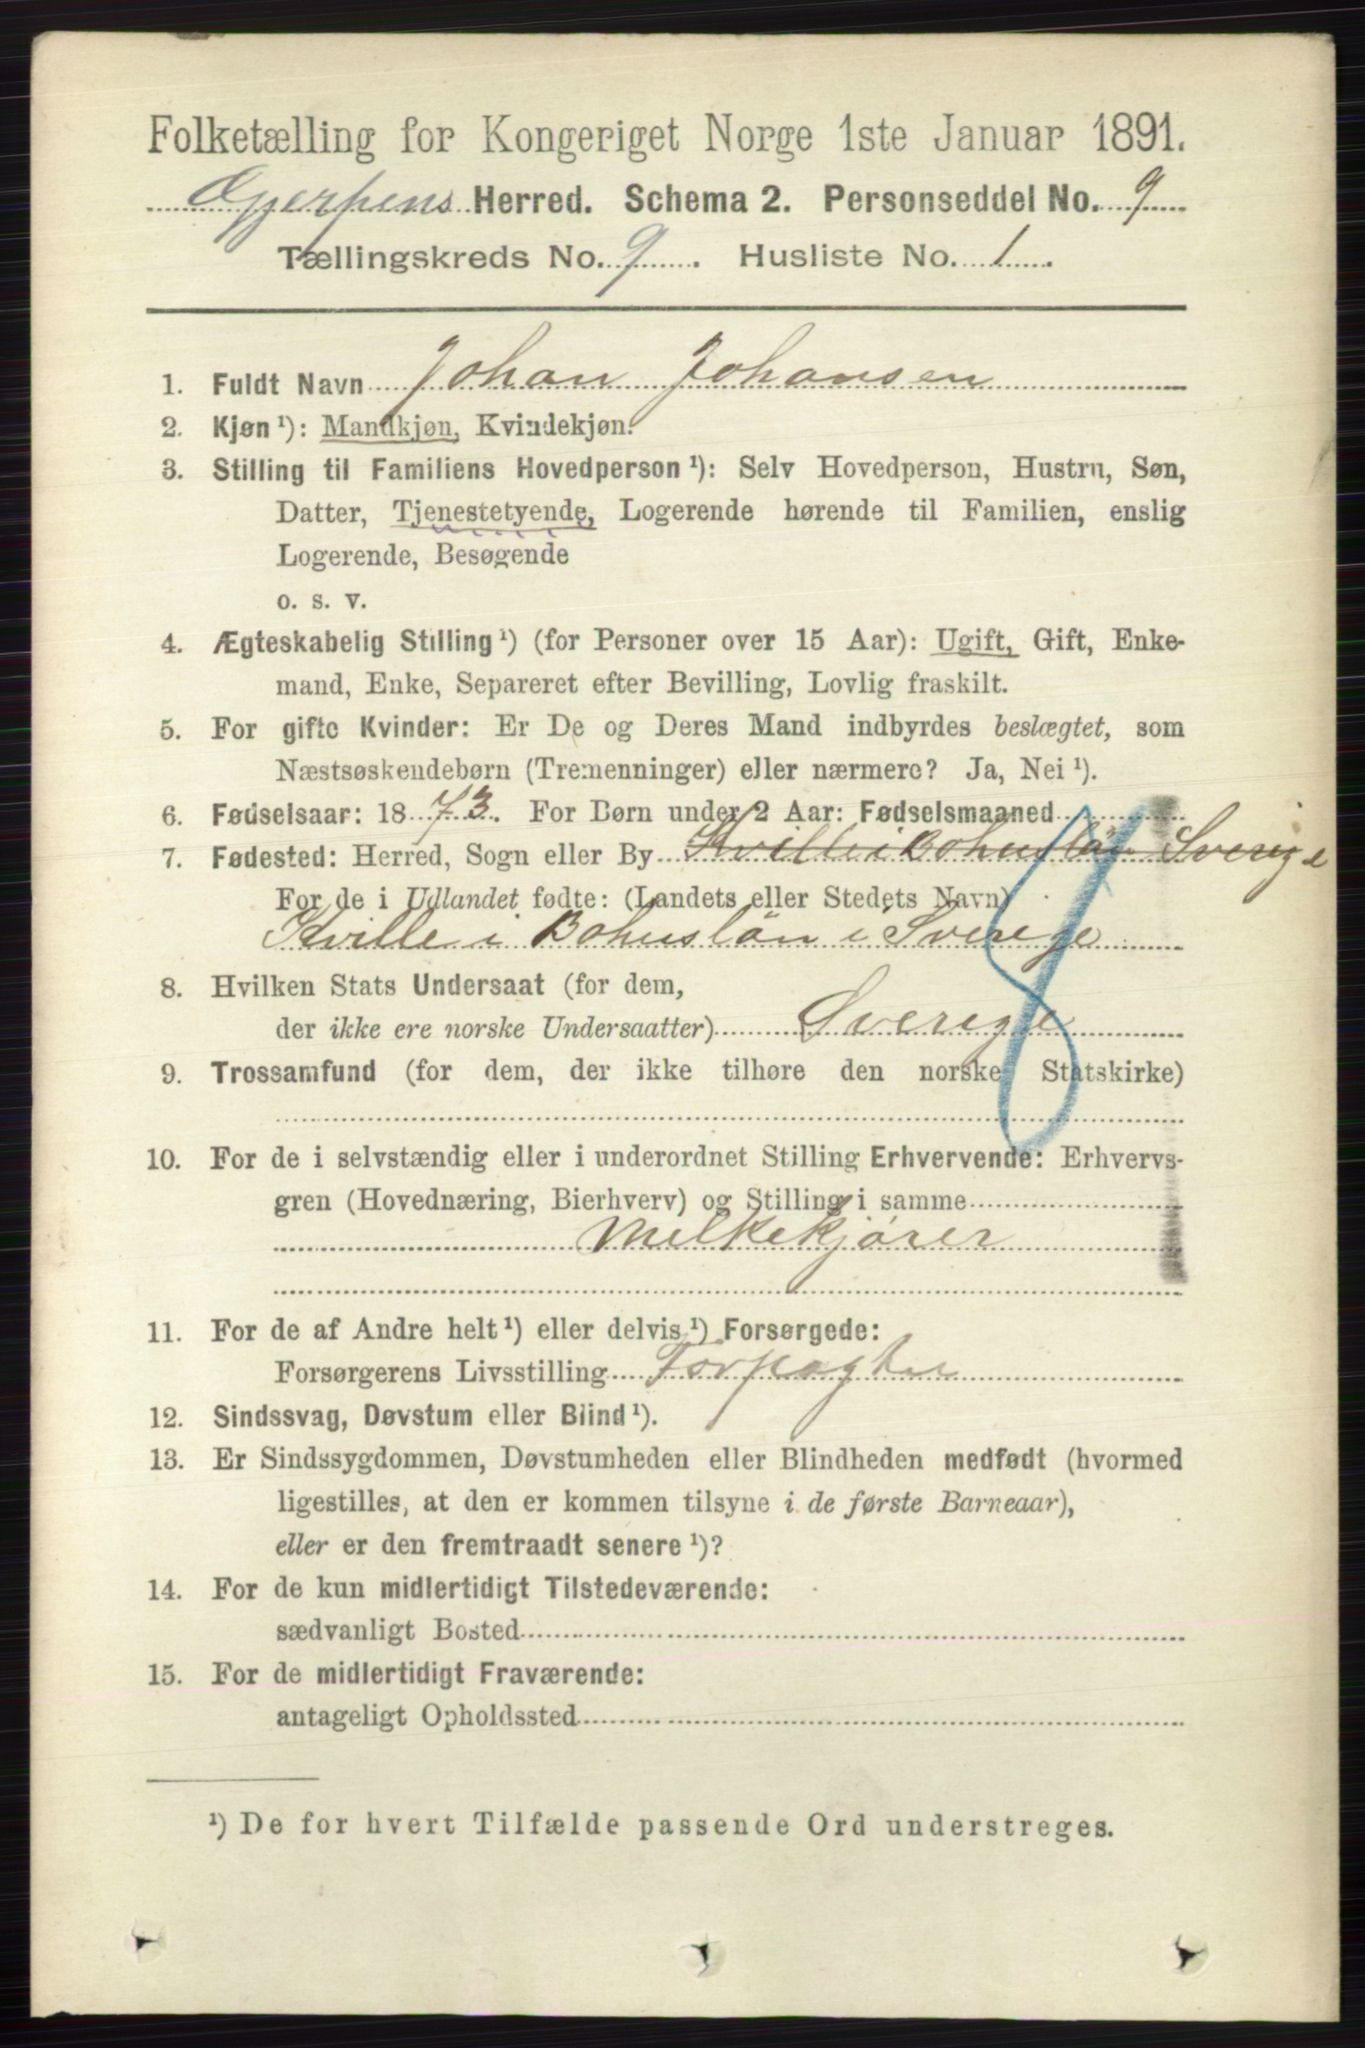 Folketælling for Kongeriget Norge 1ste Januar 1891.
Gjerpens Herred. Schema 2. Personseddel No. 9
Tællingskreds No. 9. Husliste No. 1.
1. Fuldt Navn Johan Johansen
2. Kjøn ¹): Mandkjøn, Kvindekjøn.
3. Stilling til Familiens Hovedperson ¹): Selv Hovedperson, Hustru, Søn,
Datter, Tjenestetyende, Logerende hørende til Familien, enslig
Logerende, Besøgende
o. s. v.
4. Ægteskabelig Stilling ¹) (for Personer over 15 Aar): Ugift, Gift, Enke-
mand, Enke, Separeret efter Bevilling, Lovlig fraskilt.
5. For gifte Kvinder: Er De og Deres Mand indbyrdes beslægtet, som
Næstsøskendebørn (Tremenninger) eller nærmere? Ja, Nei ¹).
6. Fødselsaar: 1873. For Børn under 2 Aar: Fødselsmaaned
7. Fødested: Herred, Sogn eller By Kville i Bohuslän Sverige
For de i Udlandet fødte: (Landets eller Stedets Navn)
Kville i Bohuslän i Sverege
8. Hvilken Stats Undersaat (for dem,
der ikke ere norske Undersaatter) Sverige
9. Trossamfund (for dem, der ikke tilhøre den norske Statskirke)
10. For de i selvstændig eller i underordnet Stilling Erhvervende: Erhvervs-
gren (Hovednæring, Bierhverv) og Stilling i samme
Melkekjører
11. For de af Andre helt ¹) eller delvis ¹) Forsørgede:
Forsørgerens Livsstilling Forpagter
12. Sindssvag, Døvstum eller Blind ¹).
13. Er Sindssygdommen, Døvstumheden eller Blindheden medfødt (hvormed
ligestilles, at den er kommen tilsyne i de første Barneaar),
eller er den fremtraadt senere ¹)?
14. For de kun midlertidigt Tilstedeværende:
sædvanligt Bosted
15. For de midlertidigt Fraværende:
antageligt Opholdssted
¹) De for hvert Tilfælde passende Ord understreges.